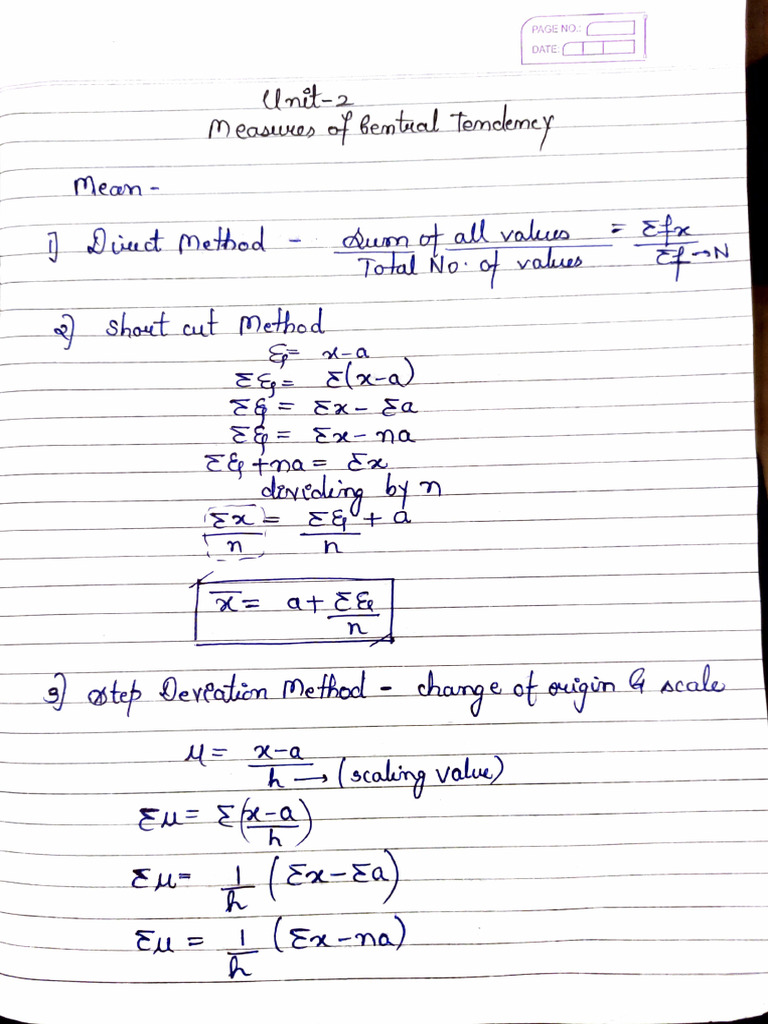 PAGE NO.:
DATE:
Unit-2
Measures of Central Tendency
Mean -
1) Direct Method - Sum of all values / Total No. of values = Σfx / Σf → N
2) Short cut Method
ξ = x-a
Σξ = Σ(x-a)
Σξ = Σx - Σa
Σξ = Σx - na
Σξ + na = Σx
dividing by n
Σx/n = Σξ/n + a
x̄ = a + Σξ/n
3) Step Deviation Method - change of origin & scale
μ = x-a / h → (scaling value)
Σμ = Σ(x-a / h)
Σμ = 1/h (Σx - Σa)
Σμ = 1/h (Σx - na)